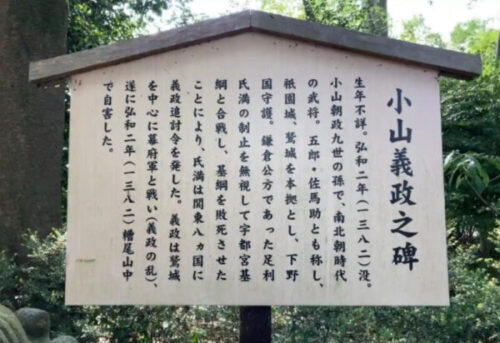 小山義政之碑
生年不詳。弘和二年（一三八二）没。
小山朝政九世の孫で、南北朝時代
の武将。五郎・佐馬助とも称し、
祇園城、鷲城を本拠とし、下野
国守護。鎌倉公方であった足利
氏満の制止を無視して宇都宮基
綱と合戦し、基綱を敗死させた
ことにより、氏満は関東八ヵ国に
義政追討令を発した。義政は鷲城
を中心に幕府軍と戦い（義政の乱）、
遂に弘和二年（一三八二）糟尾山中
で自害した。